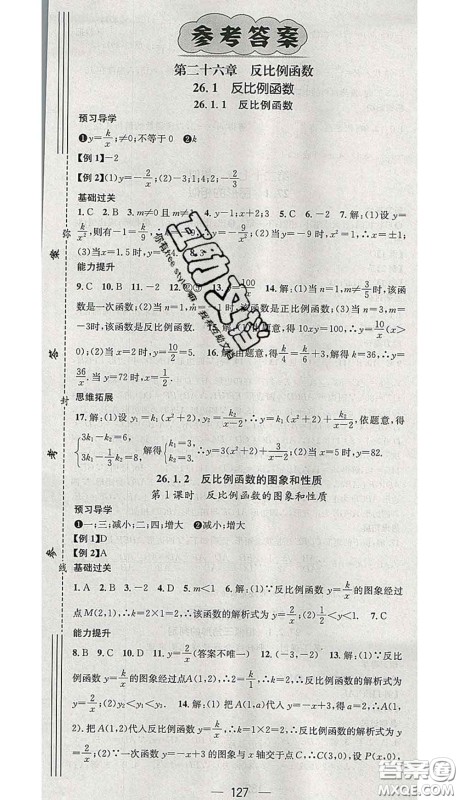 参考答案
第二十六章 反比例函数
26.1 反比例函数
26.1.1 反比例函数
预习导学
❶y=k/x;≠0;不等于0 ❷k
【例1】-2
【例2】(1)y=-2/x;(2)-3;1;4;2;-2/3
基础过关
1.C 2.B 3.m≠0且m≠ 4.y-1;x+2;3 5.C 6.-2 7.B 8.解:(1)设y=
k/x²,则有-1=k/9, y=-9/x²;(2)当y=-9时,-9=-9/x²,∴x²=1,∴x=±1;
(3)当x=1.5时,y=
能力提升
9.C 10.B 11.-4 12. 13. 100/x 14.解:(1)当m≠3/5时,该函
数是一次函数;(2)当 时,该函数是正比例函数;(3)当m=
-3时,该函数是反比例函数. 得10xy=100,∴y=10/x(x>
0);(2)当x=2时,y=5. 16. 由题意,得k/4=k/6+3,解得k=36,∴y=
36/x.当y=72时,x=1/2.
思维拓展
17.解:(1)设y₁=k₁(x²+2),y₂=k₂/(x-2),∴y=k₁(x²+2)+k₂/(x-2),依题意,得
3k₁-k₂=6,
3k₁-1/3k₂=8, 解得 ∴y=3(x²+2)+3/(x-2);(2)当x=5时,y=82.
26.1.2 反比例函数的图象和性质
第1课时 反比例函数的图象和性质
预习导学
❶一;三;减小;二;四;增大 ❷减小;增大
【例1】D
【例2】A
基础过关
1.A 2.B 3.-2 4.D 5.m<1 6.解:(1)∵反比例函数y=k/x的图象经过
点M(2,1),∴k=2×1=2,∴该函数的解析式为y=2/x;(2)1/2<y<1. 7.C
能力提升
8.B 9.C 10.D 11.y=2/x(答案不唯一) 12.(-3,-2) 13.解:(1)∵反比
例函数y=k/x的图象经过点A(1,2),∴2=k/1,∴k=2,∴这个函数的解析式为y
=2/x;(2)y₂<y₁<y₃. 14.解:(1)把A(1,a)代入y=-x+3,得a=2,∴A(1,
2).把A(1,2)代入反比例函数y=k/x,∴k=1×2=2,∴反比例函数的解析式为
y=2/x;(2)∵一次函数y=-x+3的图象与x轴交于点C,∴C(3,0),设P(x,0),
127
弥
封
线
案
答
考
参
互助文言
你有free style吗
我来互助文
答案圈
MXQE.COM